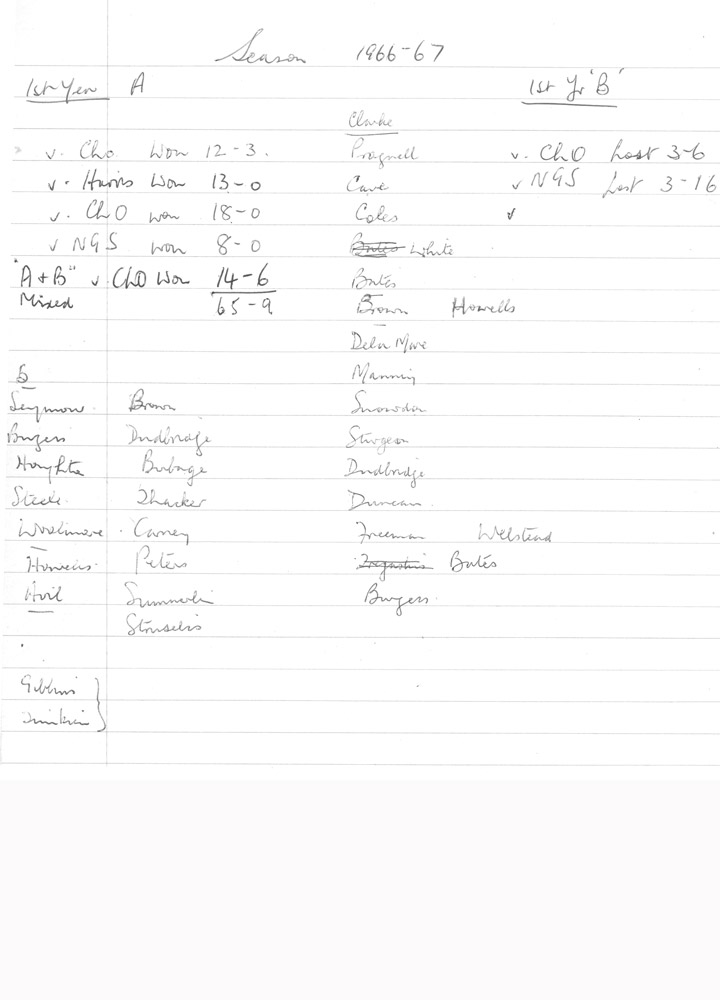 Season 1966-67
1st Year A 1st Yr 'B'
Clarke
v. Cho Won 12-3. Pragnell v. ChO Lost 3-6
v. Harris Won 13-0 Cave v NGS Lost 3-16
v. ChO won 18-0 Coles v
v NGS won 8-0 Bates White
"A+B" v. ChO Won 14-6 Bates
Mixed 65-9 Brown Howells
Dela Mare
5 Manning
Seymour Brown Snowdon
Burgess Dudbridge Sturgeon
Houghton Burbage Dudbridge
Steele Thacker Duncan
Carney Freeman Welstead
Peters Bates
Avil Burgess